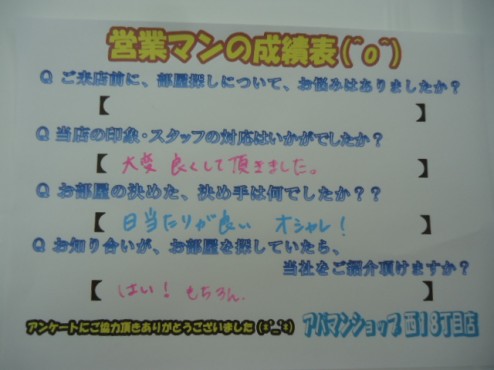 営業マンの成績表(^o^)
Q ご来店前に、部屋探しについて、お悩みはありましたか？
【 】
Q 当店の印象・スタッフの対応はいかがでしたか？
【 大変 良くして頂きました。 】
Q お部屋の決めた、決め手は何でしたか？？
【 日当たりが良い オシャレ! 】
Q お知り合いが、お部屋を探していたら、
当社をご紹介頂けますか？
【 はい! もちろん. 】
アンケートにご協力頂きありがとうございました(*^_^*)
アパマンショップ 西18丁目店